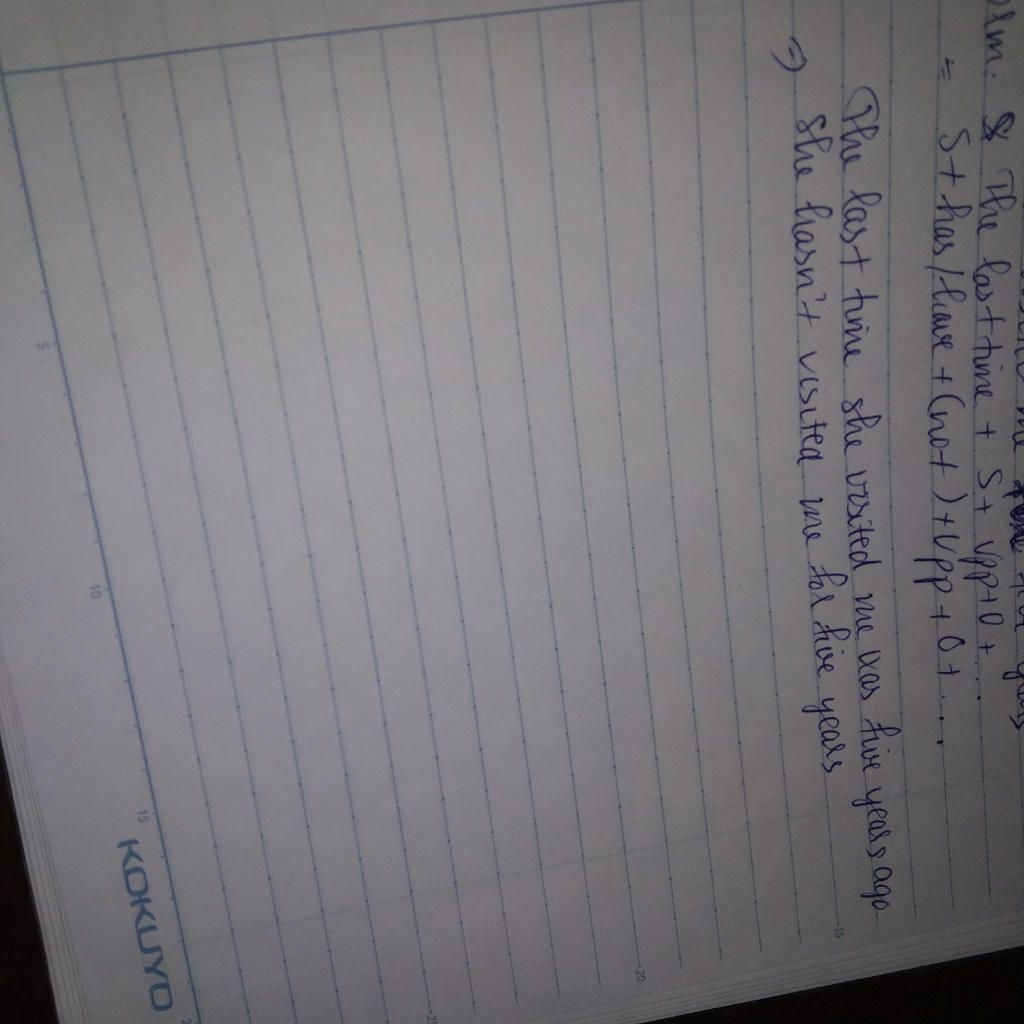 me five years
Form: The last time + S + Vpp + O + ...
= S + has / have + (not) + Vpp + O + ....
The last time she visited me was five years ago
=> She hasn't visited me for five years
5
10
15
20
25
15
KOKUYO